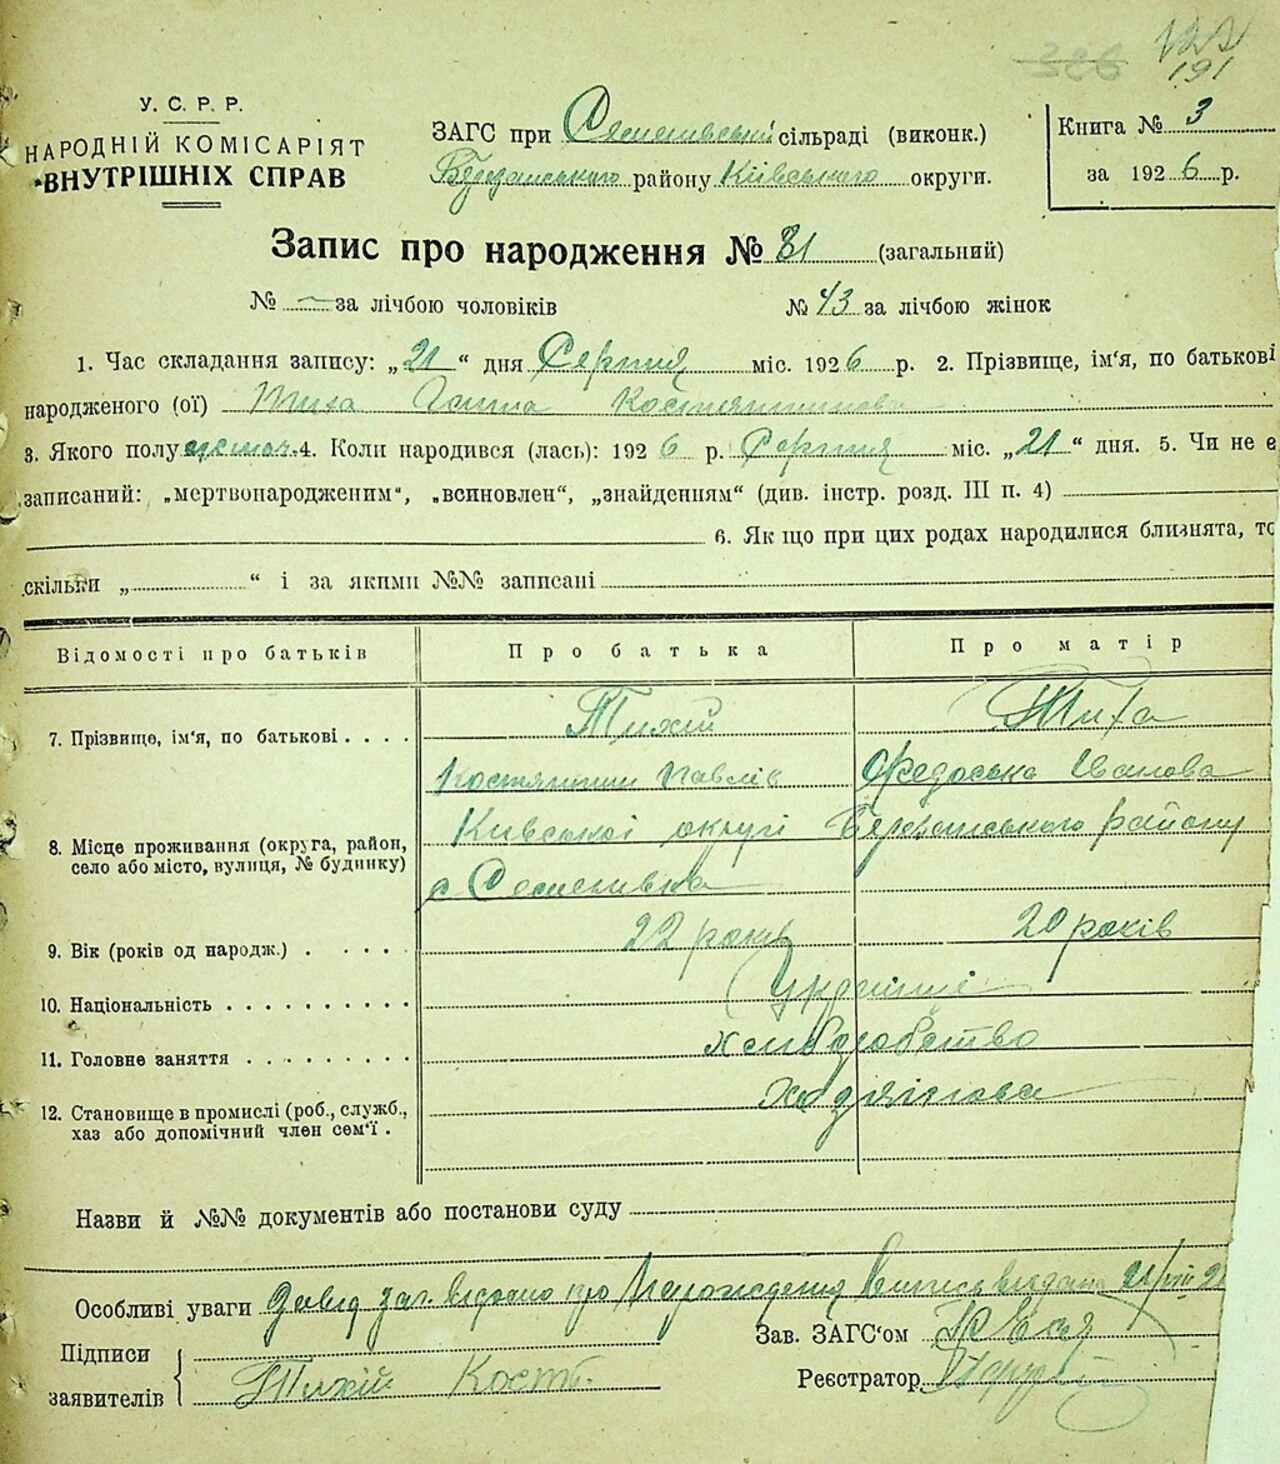 191
У. С. Р. Р.
НАРОДНІЙ КОМІСАРІЯТ
ВНУТРІШНІХ СПРАВ
ЗАГС при Семенівській сільраді (виконк.)
Березанського району Київського округи.
Книга № 3
за 1926 р.
Запис про народження № 81 (загальний)
№ — за лічбою чоловіків № 43 за лічбою жінок
1. Час складання запису: „21“ дня Серпня міс. 1926 р. 2. Прізвище, ім‘я, по батькові
народженого (ої) Тиха Ганна Костянтинова
3. Якого полу жіноч. 4. Коли народився (лась): 1926 р. Серпня міс. „21“ дня. 5. Чи не є
записаний: „мертвонародженим“, „всиновлен“, „знайденням“ (див. інстр. розд. III п. 4)
6. Як що при цих родах народилися близнята, то
скільки „ “ і за якими №№ записані
Відомості про батьків Про батька Про матір
7. Прізвище, ім‘я, по батькові . . . . Тихій Тиха
Костянтин Павлів Федоська Іванова
8. Місце проживання (округа, район, село або місто, вулиця, № будинку) Київської округі Березанського району
с Семенівка
9. Вік (років од народж.) . . . . . 22 років 20 років
10. Національність . . . . . . . . . . Українці
11. Головне заняття . . . . . . . . . Хліборобство
12. Становище в промислі (роб., служб.,
хаз або допомічний член сем‘ї .
Назви й №№ документів або постанови суду
Особливі уваги видана 21/VIII 26
Зав. ЗАГС‘ом
Підписи
заявителів Тихій Кост.
Реєстратор